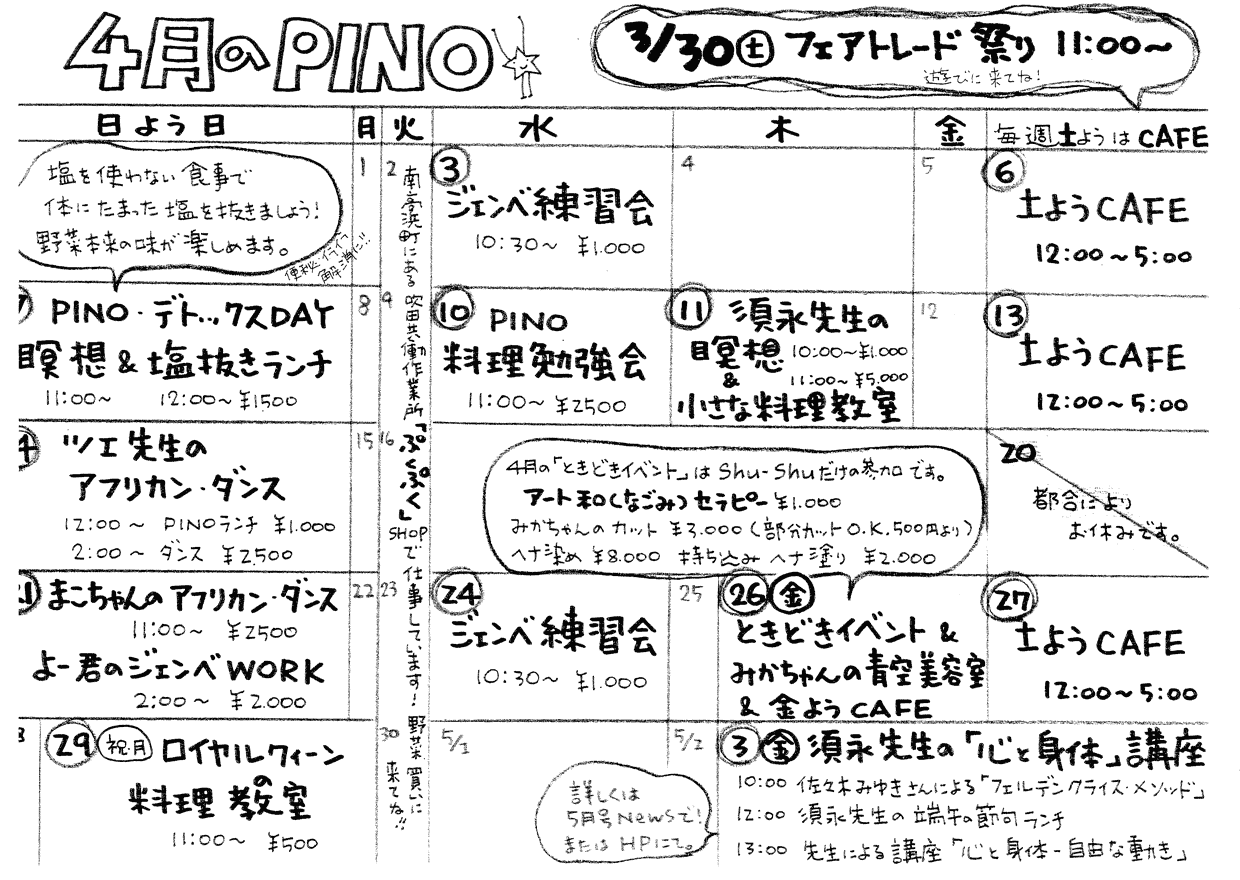 4月のPINO
3/30(土) フェアトレード祭り 11:00〜
遊びに来てね!
日よう日
月
火
水
木
金
毎週土ようはCAFE
塩を使わない食事で
体にたまった塩を抜きましょう!
野菜本来の味が楽しめます。
便秘・イライラ
解消に!!
1
2
南高浜町にある
吹田共働作業所
「ぷくぷく」
SHOPで仕事しています!
野菜買いに
来てね!!
3
ジェンベ練習会
10:30〜 ¥1.000
4
5
6
土ようCAFE
12:00〜5:00
7
PINO・デトックスDAY
瞑想&塩抜きランチ
11:00〜 12:00〜¥1500
8
9
10
PINO
料理勉強会
11:00〜 ¥2500
11
須永先生の
瞑想 10:00〜¥1.000
& 11:00〜¥5.000
小さな料理教室
12
13
土ようCAFE
12:00〜5:00
ツエ先生の
アフリカン・ダンス
12:00〜 PINOランチ ¥1.000
2:00〜 ダンス ¥2.500
15
16
4月の「ときどきイベント」はShu-Shuだけの参加です。
アート和(なごみ)セラピー ¥1.000
みかちゃんのカット ¥3.000(部分カットO.K.500円より)
ヘナ染め ¥8.000 持ち込みヘナ塗り ¥2.000
20
都合により
お休みです。
まこちゃんのアフリカン・ダンス
11:00〜 ¥2500
よー君のジェンベWORK
2:00〜 ¥2.000
22
23
24
ジェンベ練習会
10:30〜 ¥1.000
25
26(金)
ときどきイベント&
みかちゃんの青空美容室
&金ようCAFE
27
土ようCAFE
12:00〜5:00
29 祝月 ロイヤルクィーン
の
料理教室
11:00〜 ¥500
30
5/1
詳しくは
5月号Newsで!
またはHPにて。
5/2
3(金) 須永先生の「心と身体」講座
10:00 佐々木みゆきさんによる「フェルデンクライス・メソッド」
12:00 須永先生の端午の節句ランチ
13:00 先生による講座「心と身体−自由な動き」